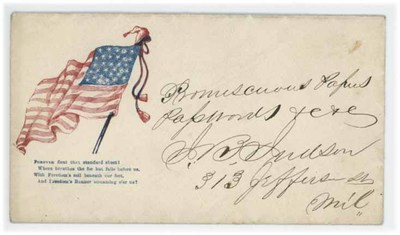 Forever float that standard sheet!
Where breathes the foe but falls before us,
With Freedom's soil beneath our feet,
And Freedom's Banner streaming o'er us?
Promiscuous Papers
Passwords &c &c
J. B. Judson
313 Jefferson st
Mil